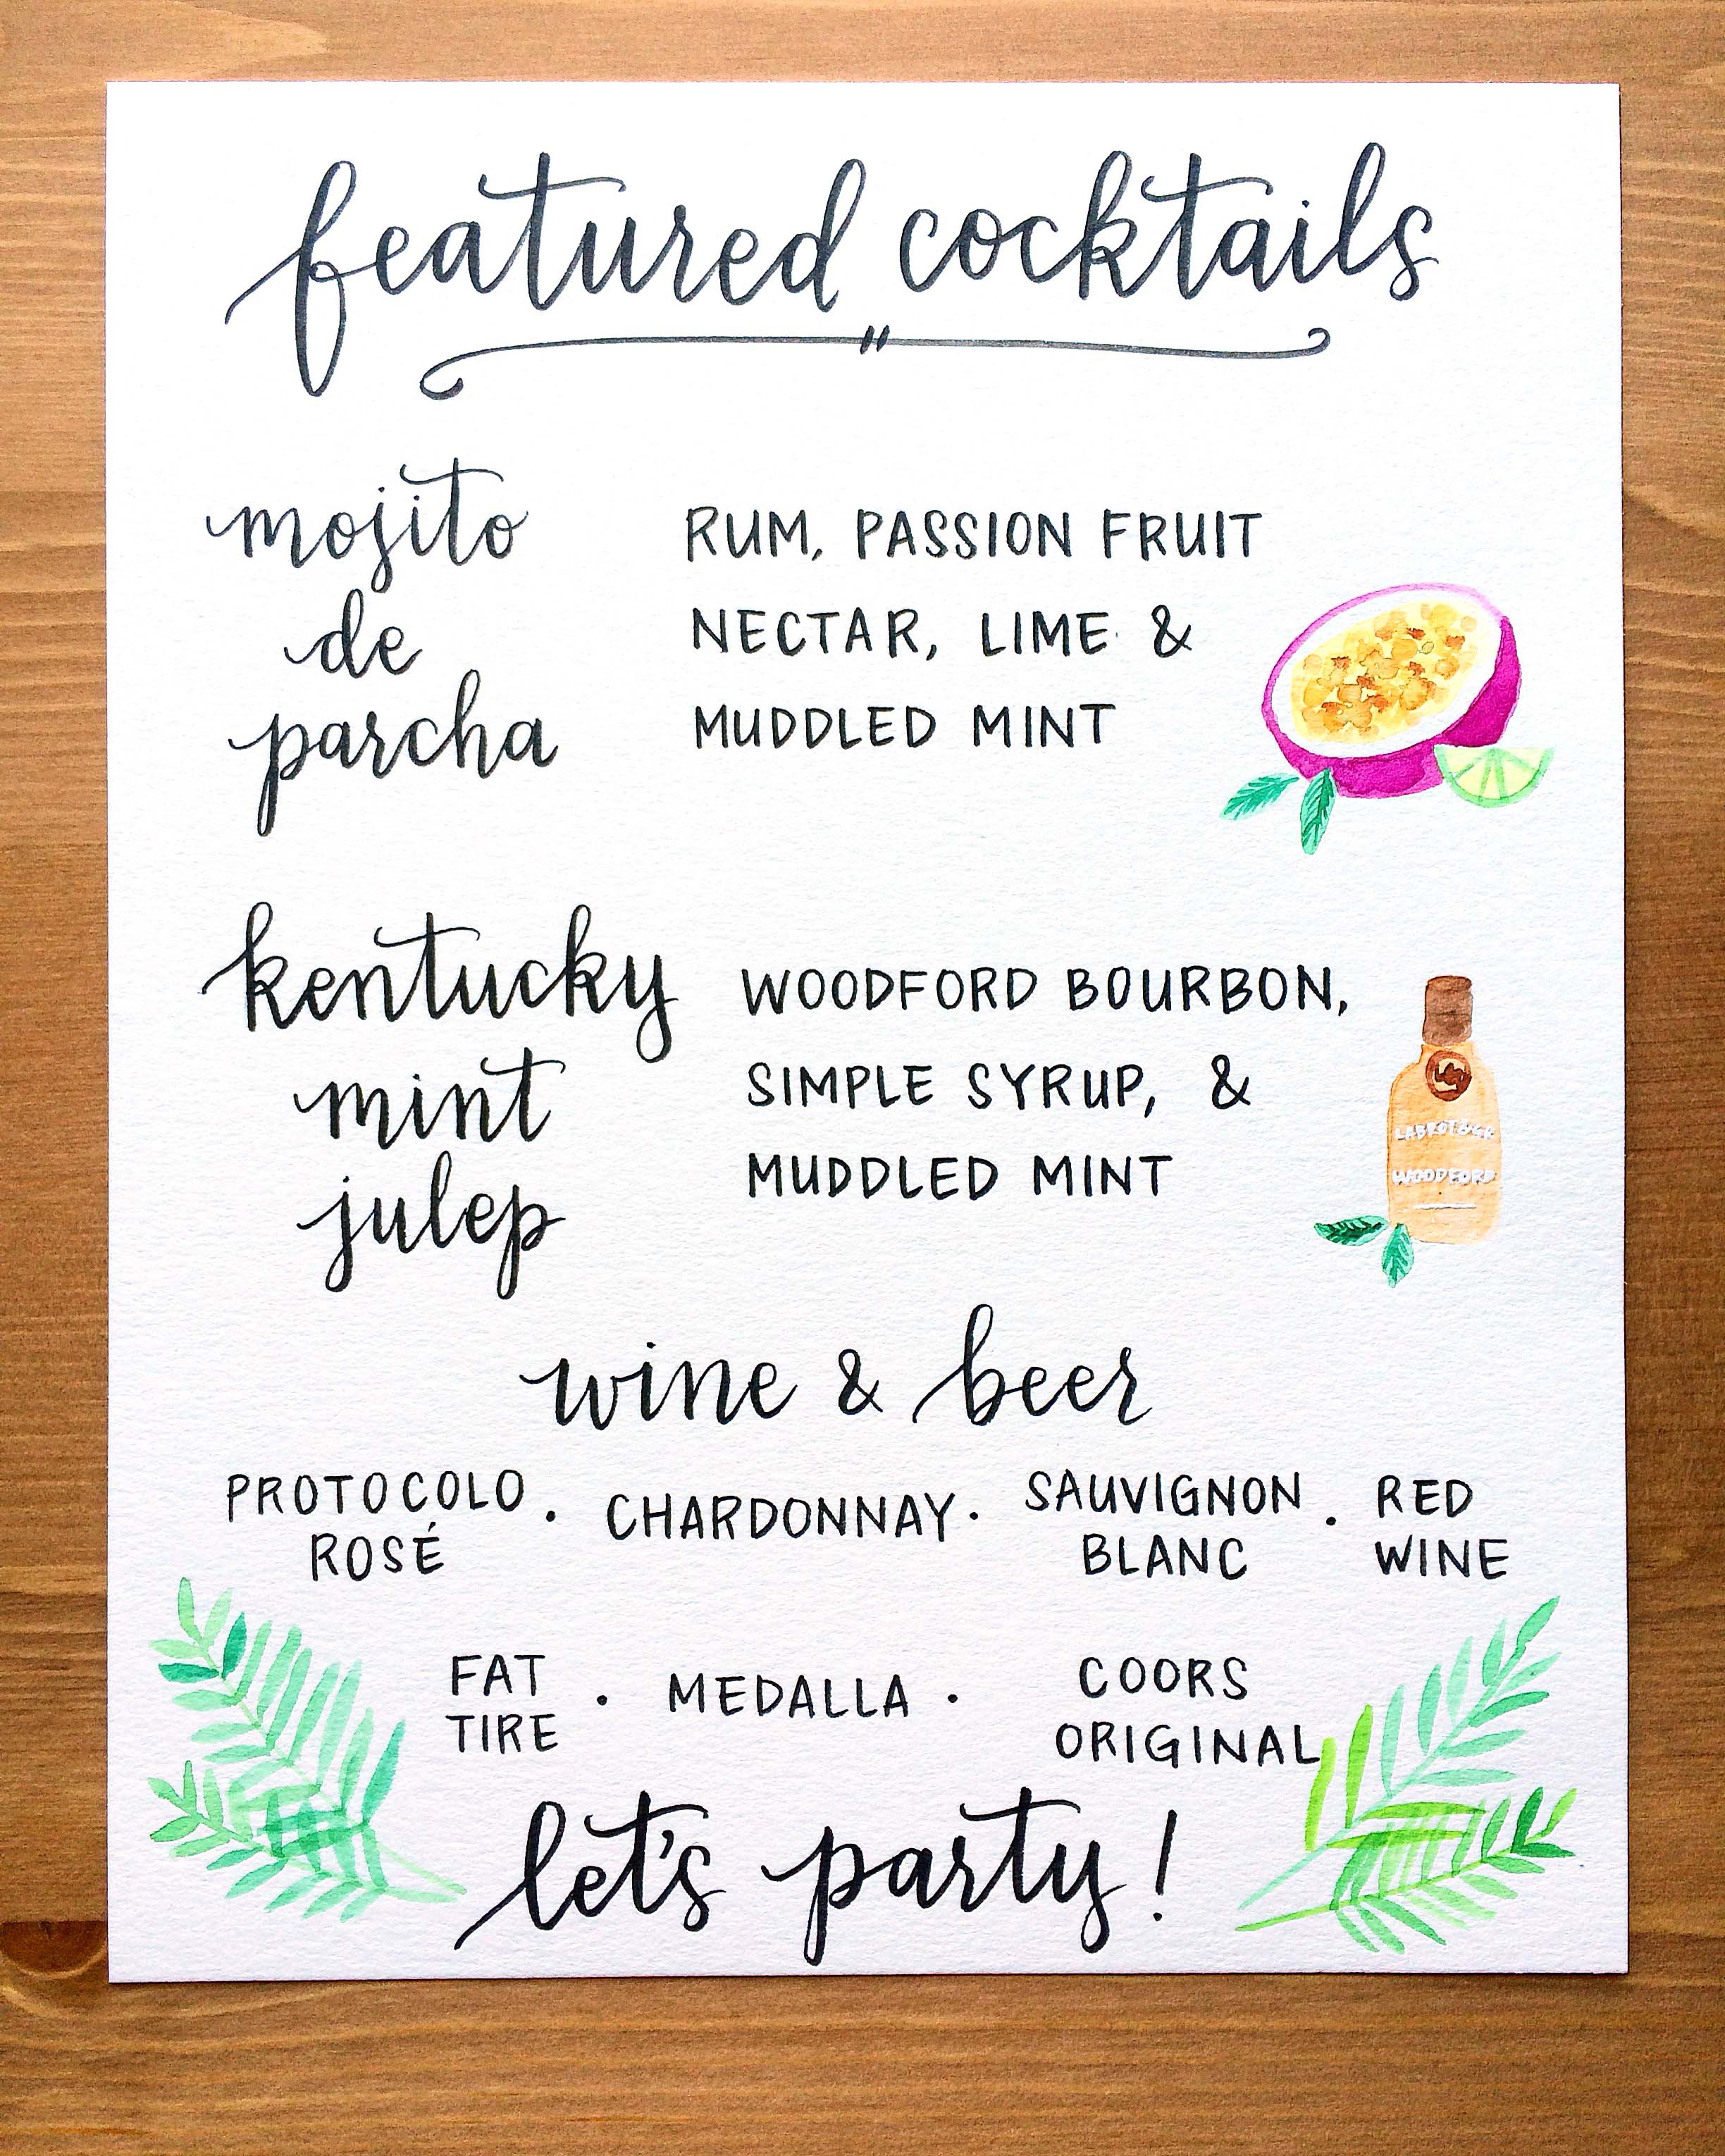 featured cocktails
mojito
de
parcha
RUM, PASSION FRUIT
NECTAR, LIME &
MUDDLED MINT
kentucky
mint
julep
WOODFORD BOURBON,
SIMPLE SYRUP, &
MUDDLED MINT
WOODFORD
wine & beer
PROTOCOLO
ROSÉ
· CHARDONNAY ·
SAUVIGNON
BLANC
·
RED
WINE
FAT
TIRE
· MEDALLA ·
COORS
ORIGINAL
let's party!